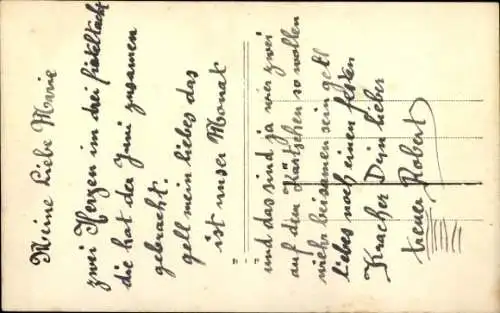 Meine Liebe Mornie
zwei Herzen im drei fierteltackt
die hat der Juni zusamen
gebracht.
gell mein liebes das
ist unser Monat
und das sind ja wier zwei
auf dem Kärtschen so wollen
wiehr beisamen sein gell
liebes noch einen festen
Kracher Dein lieber
treuer Robert